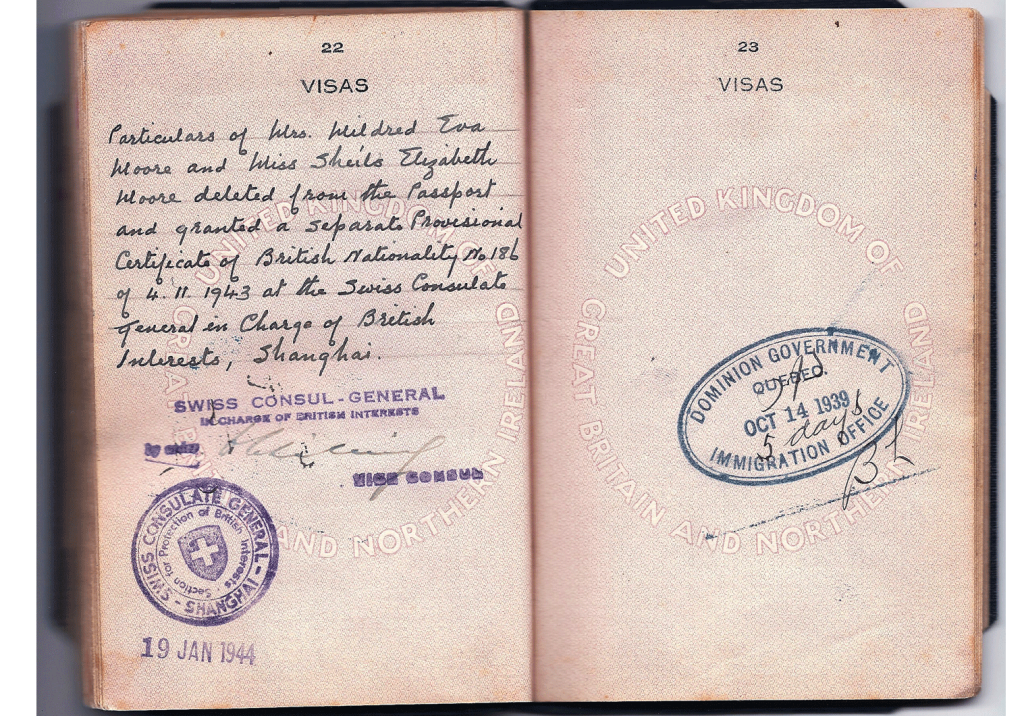 22
VISAS
Particulars of Mrs. Mildred Eva
Moore and Miss Sheila Elizabeth
Moore deleted from the Passport
and granted a separate Provisional
Certificate of British Nationality No 186
of 4. 11. 1943 at the Swiss Consulate
General in Charge of British
Interests, Shanghai.
SWISS CONSUL-GENERAL
IN CHARGE OF BRITISH INTERESTS
by order
VICE CONSUL
SWISS CONSULATE GENERAL - SHANGHAI -
Section for Protection of British Interests
19 JAN 1944
UNITED KINGDOM OF
GREAT BRITAIN AND NORTHERN IRELAND
23
VISAS
UNITED KINGDOM OF
GREAT BRITAIN AND NORTHERN IRELAND
DOMINION GOVERNMENT
QUEBEC.
OCT 14 1939
5 days
IMMIGRATION OFFICE